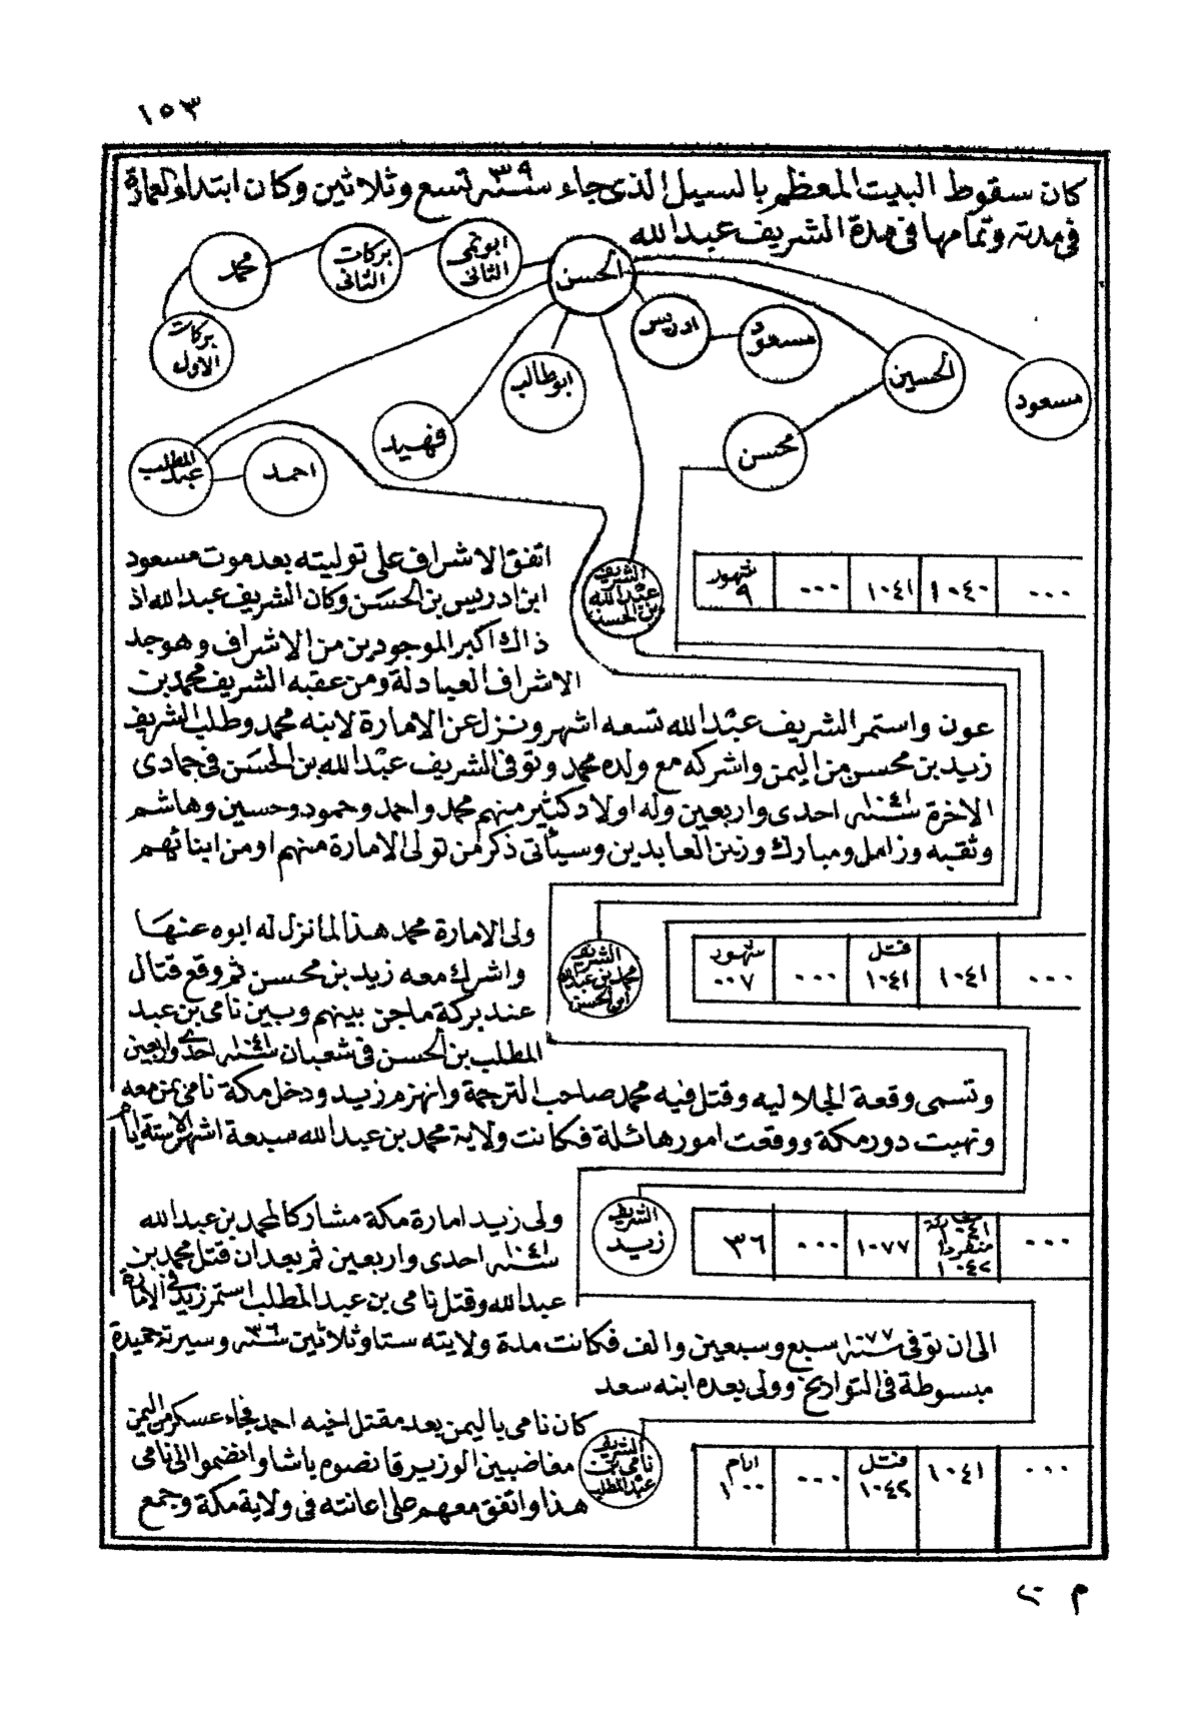 ١٥٣
كان سقوط البيت المعظم بالسيل الذى جاء سنة ٣٩ تسع وثلاثين وكان ابتداء العمارة
فى مدته وتمامها فى مدة الشريف عبد الله
الحسن
ابو نمى الثانى
بركات الثانى
محمد
بركات الاول
ادريس
مسعود
الحسين
مسعود
محسن
ابو طالب
فهيد
احمد
عبد المطلب
الشريف عبد الله بن الحسن
٠٠٠ ١٠٤٠ ١٠٤١ ٠٠٠ شهور ٩
اتفق الاشراف على توليته بعد موت مسعود
ابن ادريس بن الحسن وكان الشريف عبد الله اذ
ذاك اكبر الموجودين من الاشراف وهو جد
الاشراف العبادلة ومن عقبه الشريف محمد بن
عون واستمر الشريف عبد الله تسعه اشهر ونزل عن الامارة لابنه محمد وطلب الشريف
زيد بن محسن من اليمن واشركه مع ولده محمد وتوفى الشريف عبد الله بن الحسن فى جمادى
الاخرة سنة ١٠٤١ احدى واربعين وله اولاد كثير منهم محمد واحمد وحمود وحسين وهاشم
وثقبه وزامل ومبارك وزين العابدين وسيأتى ذكر من تولى الامارة منهم او من ابنائهم
الشريف محمد بن عبد الله بن الحسن
٠٠٠ ١٠٤١ قتل ١٠٤١ ٠٠٠ شهور ٠٠٧
ولى الامارة محمد هذا لما نزل له ابوه عنها
واشرك معه زيد بن محسن ثم وقع قتال
عند بركة ماجن بينهم وبين نامى بن عبد
المطلب بن الحسن فى شعبان سنة ١٠٤١ احدى واربعين
وتسمى وقعة الجلاليه وقتل فيه محمد صاحب الترجمة وانهزم زيد ودخل مكة نامى بمن معه
ونهبت دور مكة ووقعت امور هائلة فكانت ولاية محمد بن عبد الله سبعة اشهر الا ستة ايام
الشريف زيد
٠٠٠ مشاركة ١٠٤١ منفردا ١٠٤٢ ١٠٧٧ ٠٠٠ ٣٦
ولى زيد امارة مكة مشاركا لمحمد بن عبد الله
سنة ١٠٤١ احدى واربعين ثم بعد ان قتل محمد بن
عبد الله وقتل نامى بن عبد المطلب استمر زيد فى الامارة
الى ان توفى سنة ١٠٧٧ سبع وسبعين والف فكانت مدة ولايته ستا وثلاثين سنة ٣٦ وسيرته حميدة
مبسوطة فى التواريخ وولى بعده ابنه سعد
الشريف نامى بن عبد المطلب
٠٠٠ ١٠٤١ قتل ١٠٤٢ ٠٠٠ ايام ١٠٠
كان نامى باليمن بعد مقتل اخيه احمد فجاء عسكر من اليمن
مغاضبين الوزير قانصوه باشا وانضموا الى نامى
هذا واتفق معهم على اعانته فى ولاية مكة وجمع